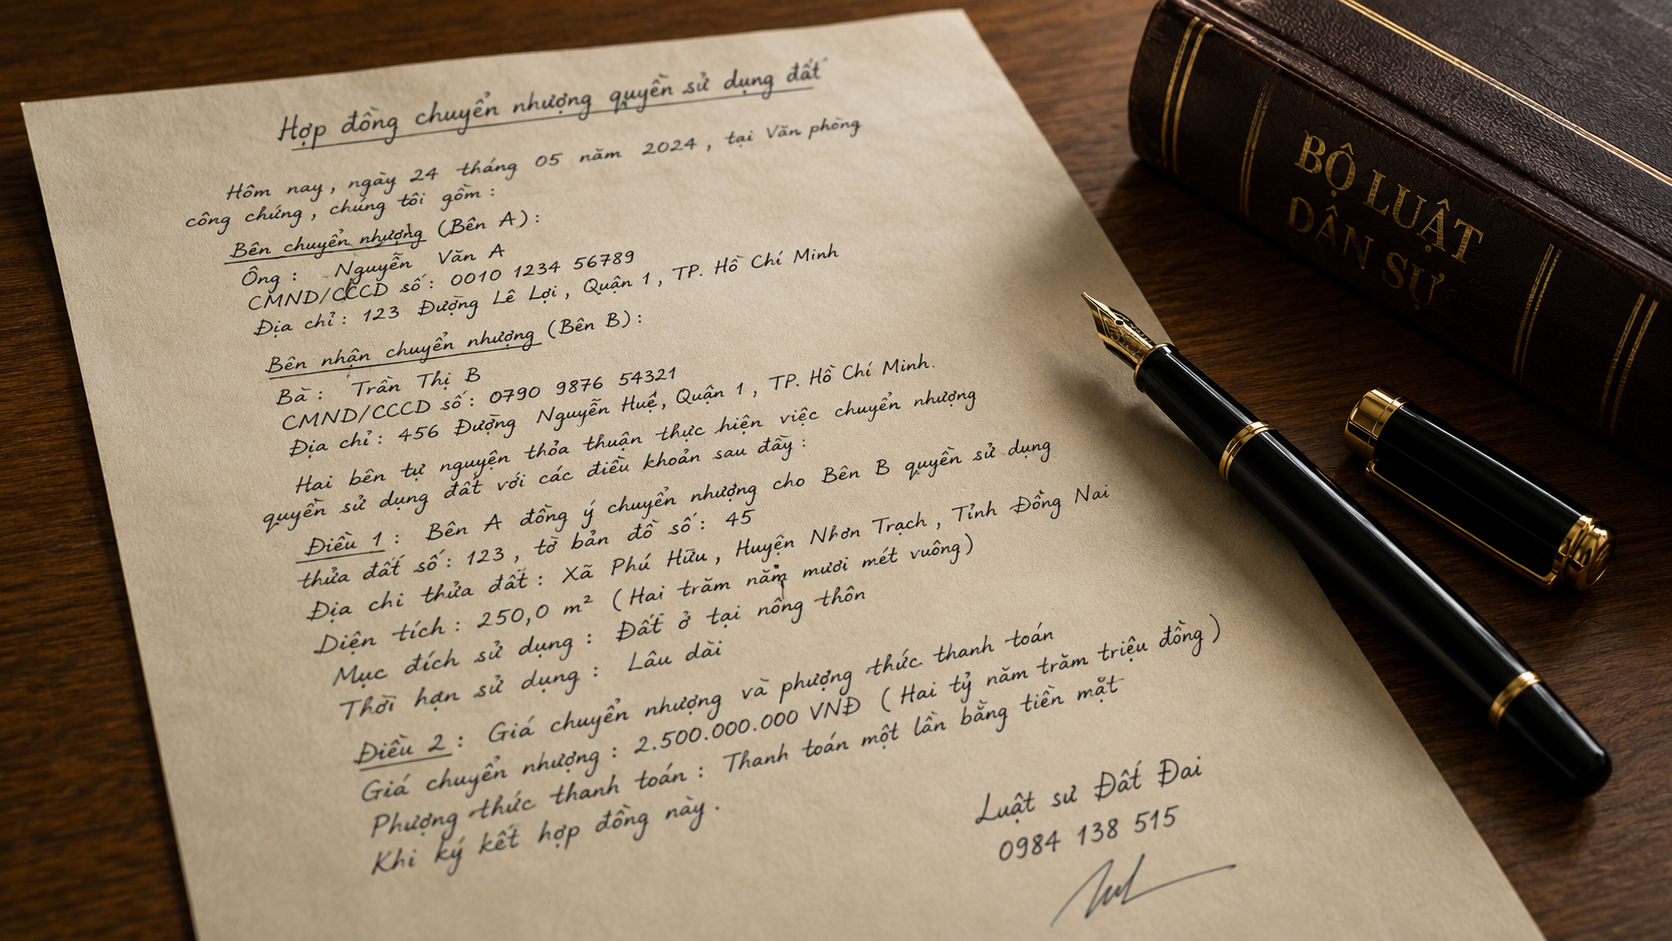 Hợp đồng chuyển nhượng quyền sử dụng đất
Hôm nay, ngày 24 tháng 05 năm 2024, tại Văn phòng
công chứng, chúng tôi gồm:
Bên chuyển nhượng (Bên A):
Ông: Nguyễn Văn A
CMND/CCCD số: 0010 1234 56789
Địa chỉ: 123 Đường Lê Lợi, Quận 1, TP. Hồ Chí Minh
Bên nhận chuyển nhượng (Bên B):
Bà: Trần Thị B
CMND/CCCD số: 0790 9876 54321
Địa chỉ: 456 Đường Nguyễn Huệ, Quận 1, TP. Hồ Chí Minh.
Hai bên tự nguyện thỏa thuận thực hiện việc chuyển nhượng
quyền sử dụng đất với các điều khoản sau đây:
Điều 1: Bên A đồng ý chuyển nhượng cho Bên B quyền sử dụng
thửa đất số: 123, tờ bản đồ số: 45
Địa chi thửa đất: Xã Phú Hữu, Huyện Nhơn Trạch, Tỉnh Đồng Nai
Diện tích: 250,0 m² (Hai trăm năm mươi mét vuông)
Mục đích sử dụng: Đất ở tại nông thôn
Thời hạn sử dụng: Lâu dài
Điều 2: Giá chuyển nhượng và phượng thức thanh toán
Giá chuyển nhượng: 2.500.000.000 VNĐ (Hai tỷ năm trăm triệu đồng)
Phượng thức thanh toán: Thanh toán một lần bằng tiền mặt
Khi ký kết hợp đồng này.
Luật sư Đất Đai
0984 138 515
BỘ LUẬT
DÂN SỰ